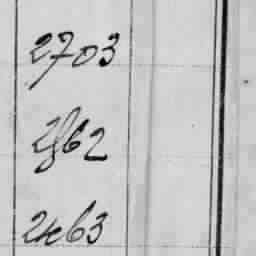 2703
2862
2463